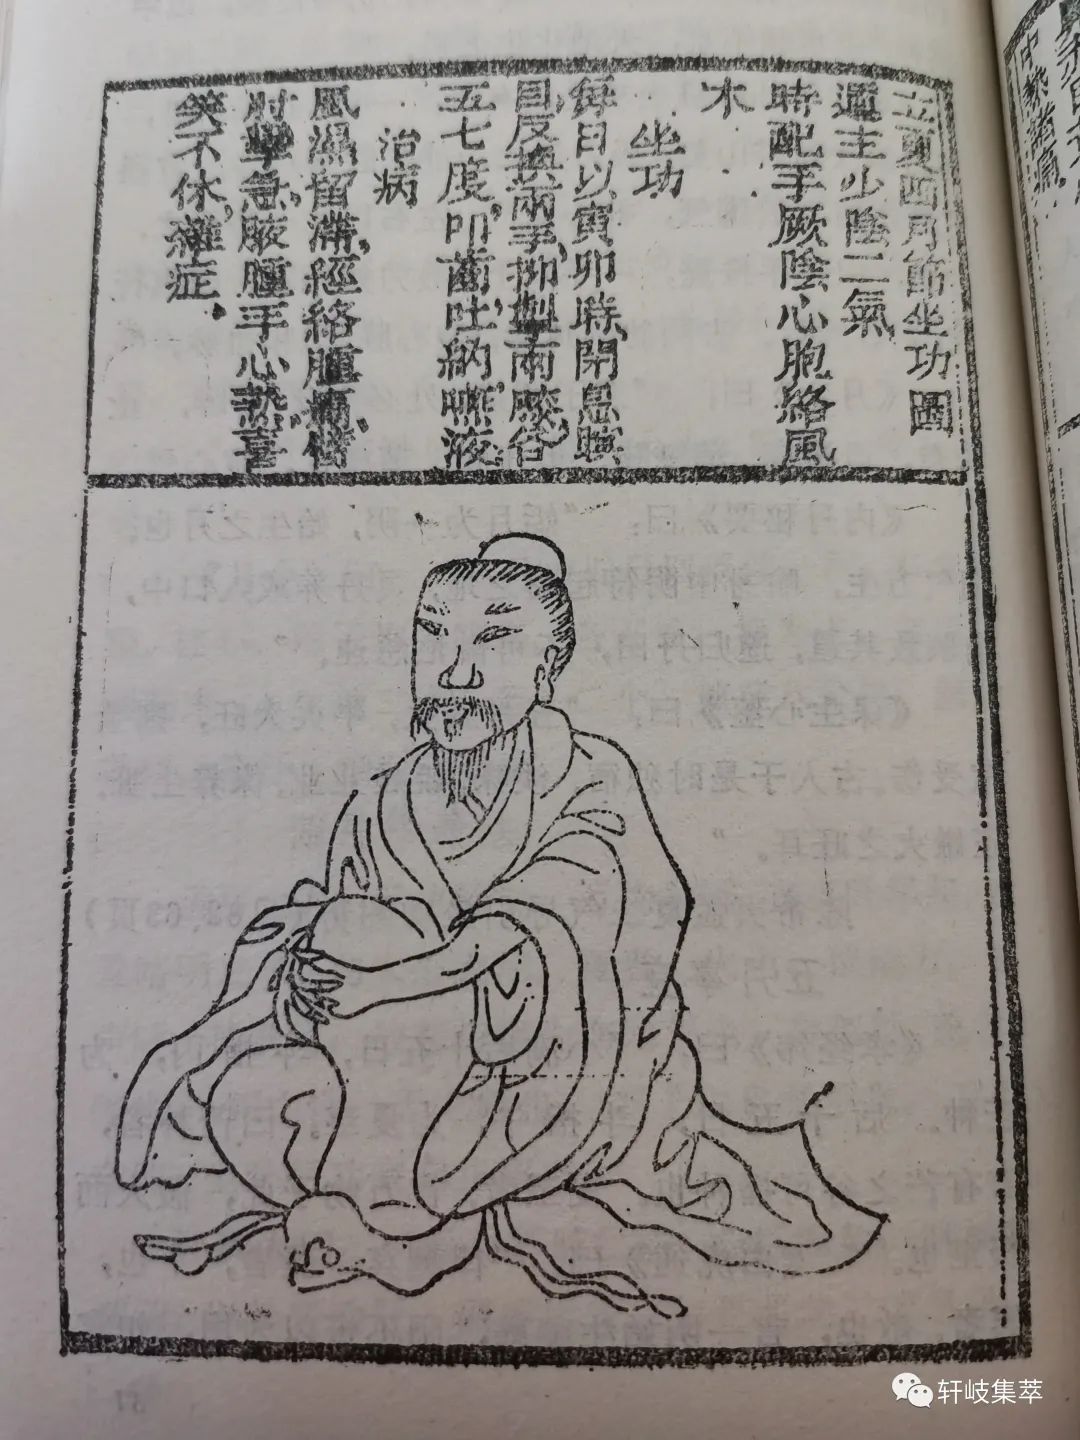 立夏四月節坐功圖
運主少陰二氣
時配手厥陰心胞絡風
木
坐功
每日以寅卯時、閉息瞑
目、反換兩手、抑掣兩膝、各
五七度、叩齒吐納嚥液、
治病
風濕留滯、經絡腫痛、臂
肘攣急、腋腫手心熱、喜
笑不休、雜症、
轩岐集萃